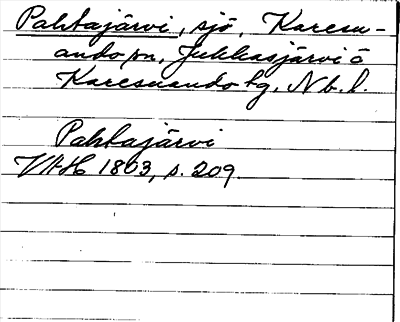 Pahtajärvi, sjö, Karesu-
ando sn, Jukkasjärvi o
Karesuando tg, Nb. l.
Pahtajärvi
VAH 1803, s. 209.